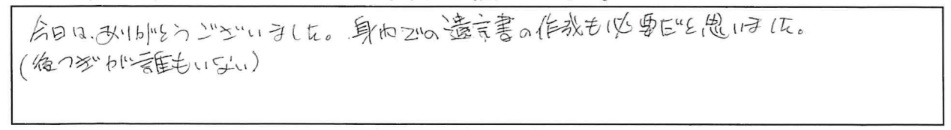 今日は、ありがとうございました。身内での遺言書の作成も必要だと思いました。
(後つぎが誰もいない)